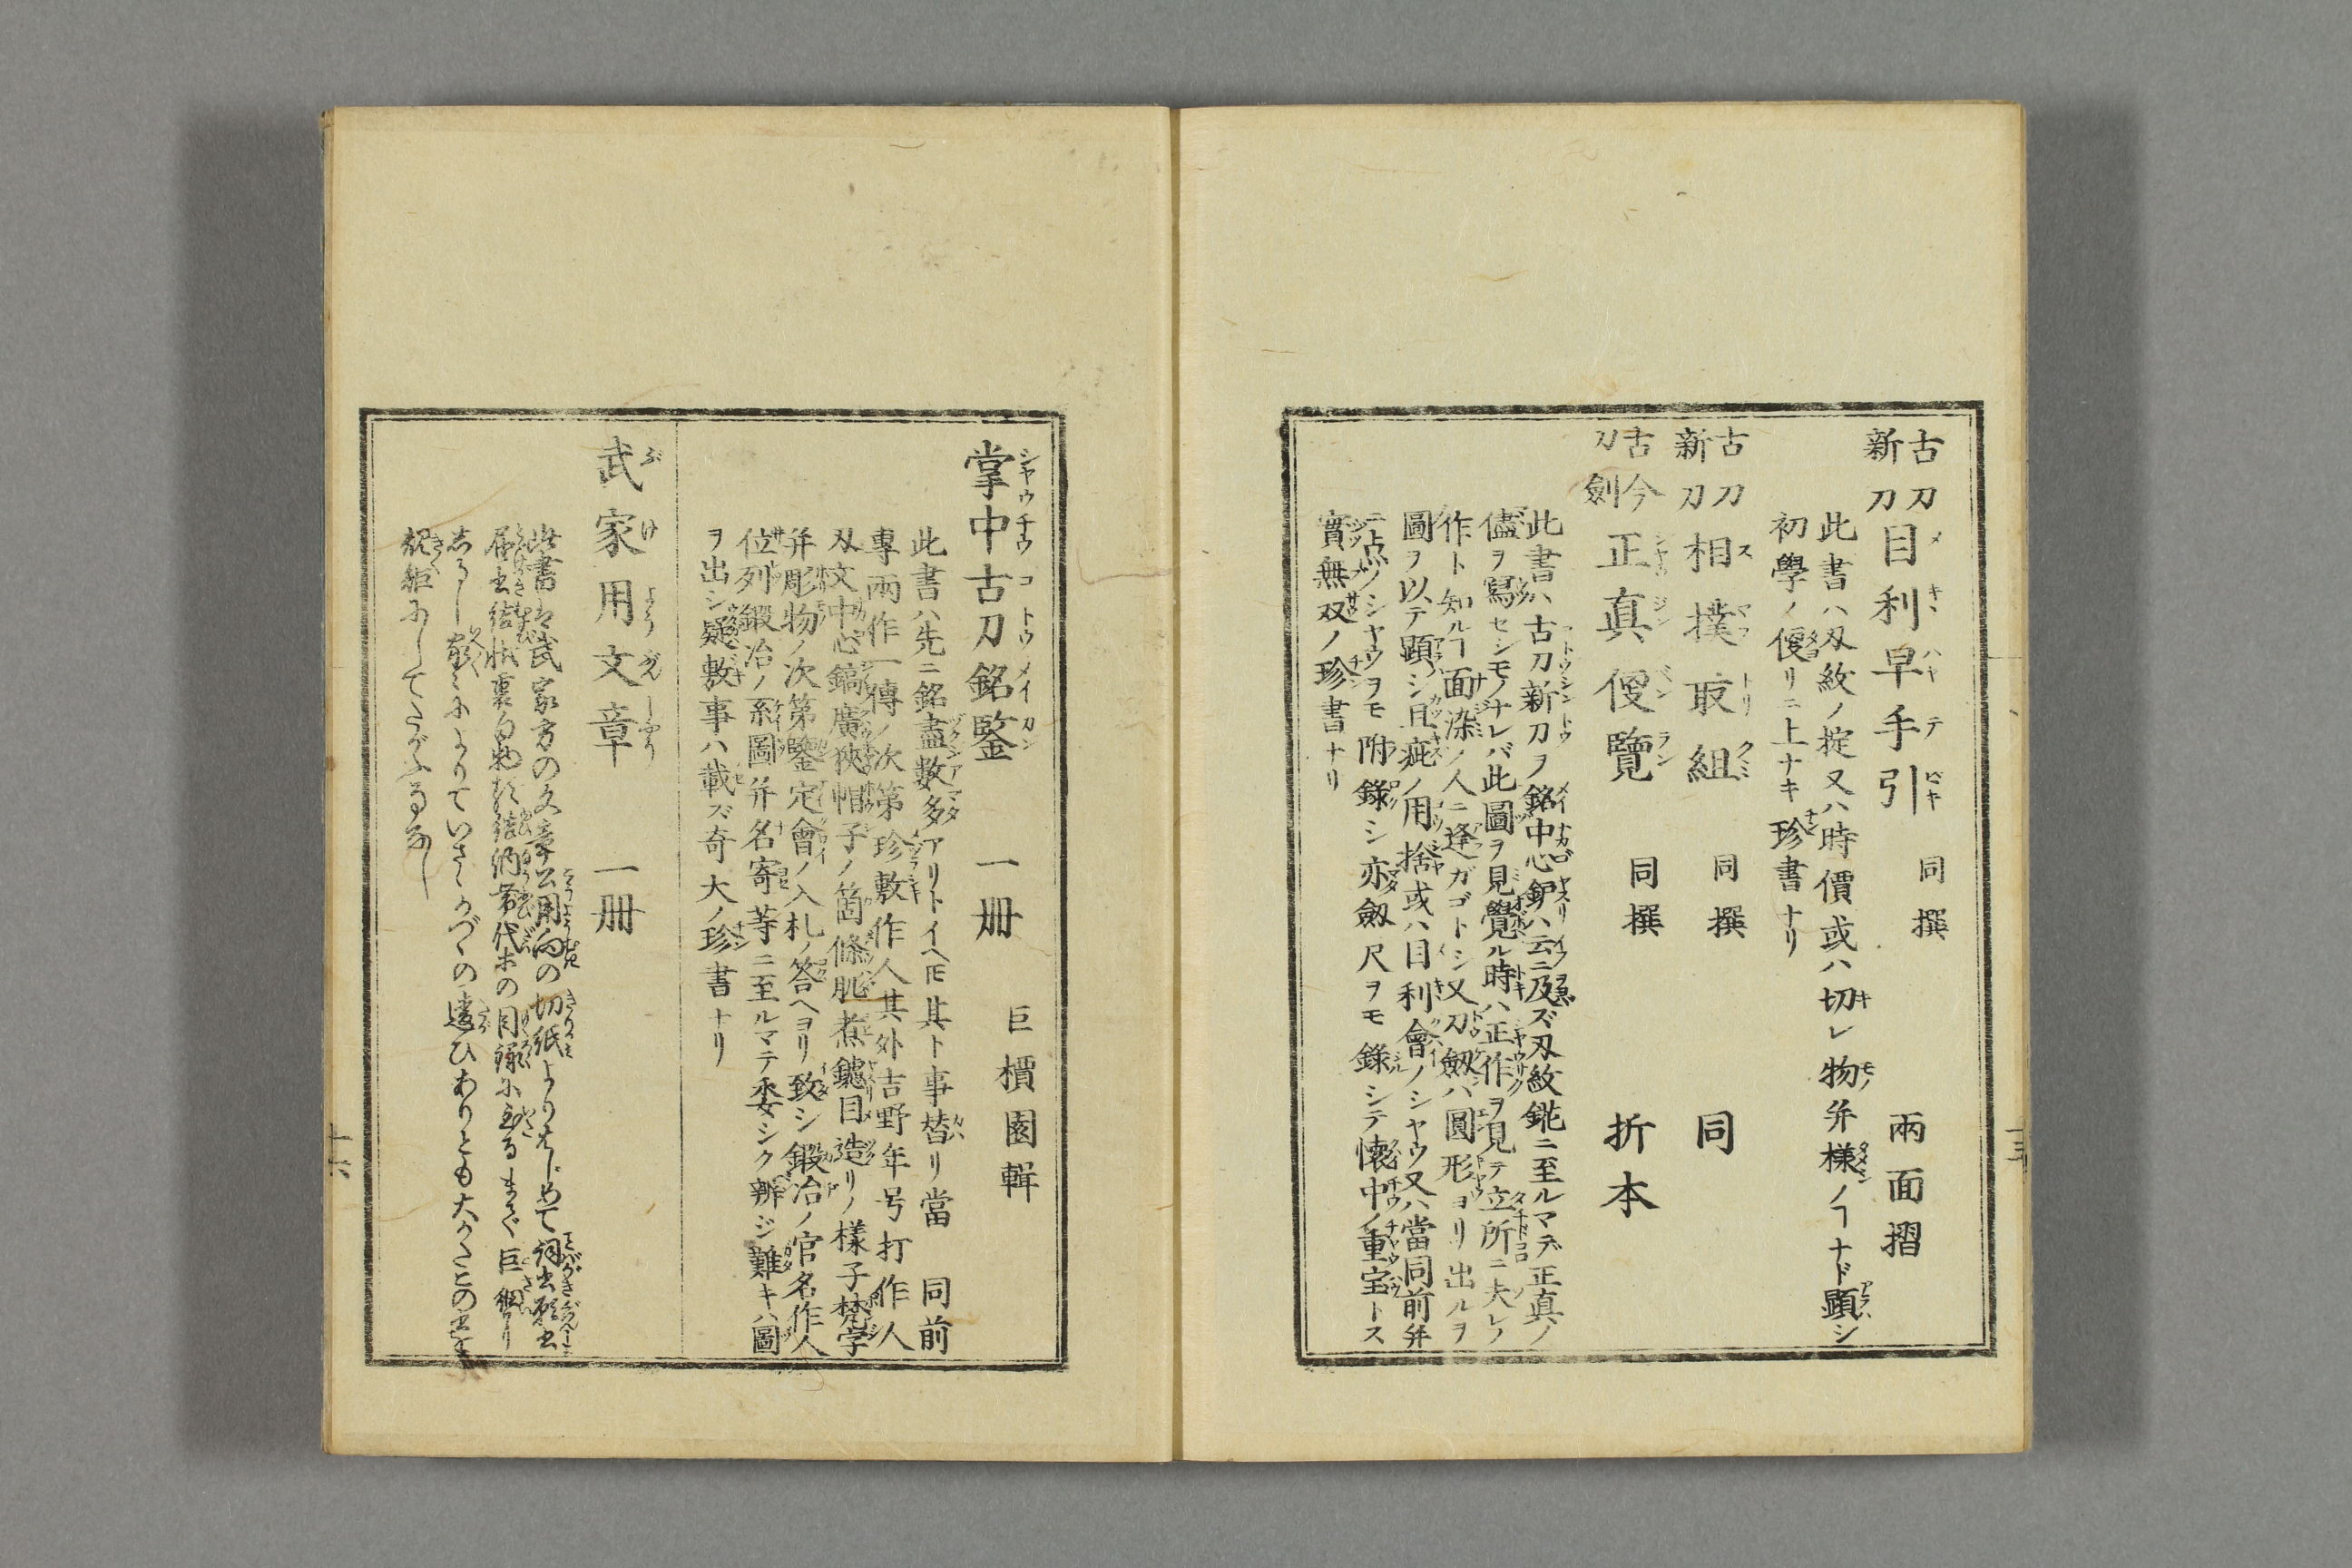 古刀新刀目利早手引 同撰 兩面摺
此書ハ刄紋ノ掟又ハ時價或ハ切レ物并樣ノヿナド顕シ
初學ノ便リニ上ナキ珍書ナリ
古刀新刀相撲取組 同撰 同
古今刀劍正真便覽 同撰 折本
此書ハ古刀新刀ヲ銘中心鈩ハ云ニ及ズ刄紋鋩ニ至ルマデ正真ノ
儘ヲ寫セシモノナレバ此圖ヲ見覺ル時ハ正作ヲ見テ立所ニ夫レノ
作ト知ルヿ面染ノ人ニ逢ガゴトシ又刀劔ハ圓形ヨリ出ルヲ
圖ヲ以テ顕シ且疵ノ用捨或ハ目利會ノシヤウ又ハ當同前并
ニ点ノシヤウヲモ附錄シ亦劔尺ヲモ錄シテ懷中ノ重宝トス
實無双ノ珍書ナリ
十五
掌中古刀銘鑒 一冊 巨櫝園輯
此書ハ先ニ銘盡數多アリトイヘ𪜈其ト事替リ當同前
專兩作一傳ノ次第珍敷作人其外吉野年号打作人
刄文中心鎬廣狹帽子ノ箇條肌煮鑢目造リノ樣子梵字
并彫物ノ次第鑒定會ノ入札ノ答ヘヨリ致シ鍛冶ノ官名作人
位列鍛冶ノ系圖并名寄等ニ至ルマテ委シク辨ジ難キハ圖
ヲ出シ疑敷事ハ載ズ奇大ノ珍書ナリ
武家用文章 一冊
此書は武家方の文章公用向の切紙よりはじめて詞書願書
届書結状裏白物頭結納帯代ホの目録に至るまで巨細
しるし家〻によりていさゝかづゝの違ひありとも大かたこの書を
規矩にしてたがふ事なし
十六